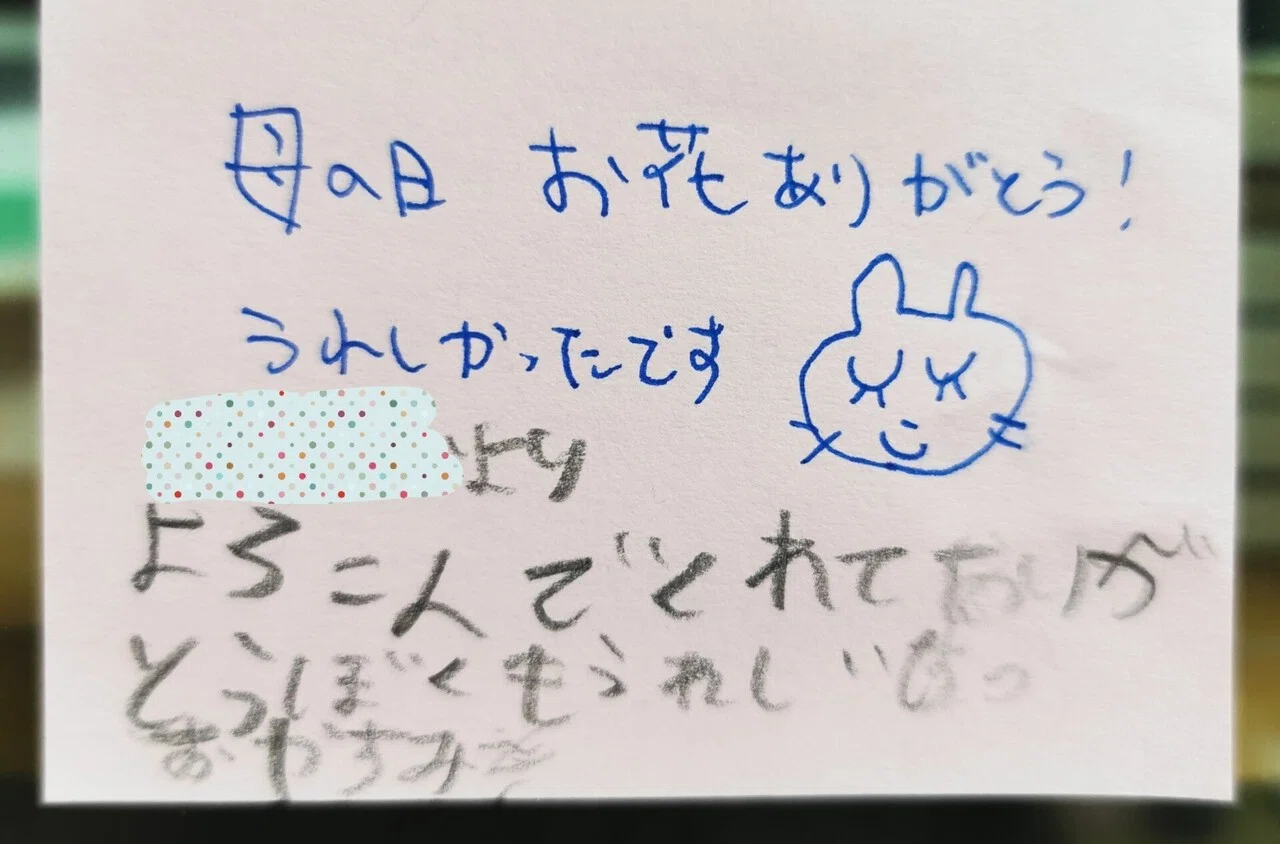 母の日 お花ありがとう!
うれしかったです
より
よろこんでくれて が
とうぼくもうれしい
おやすみ